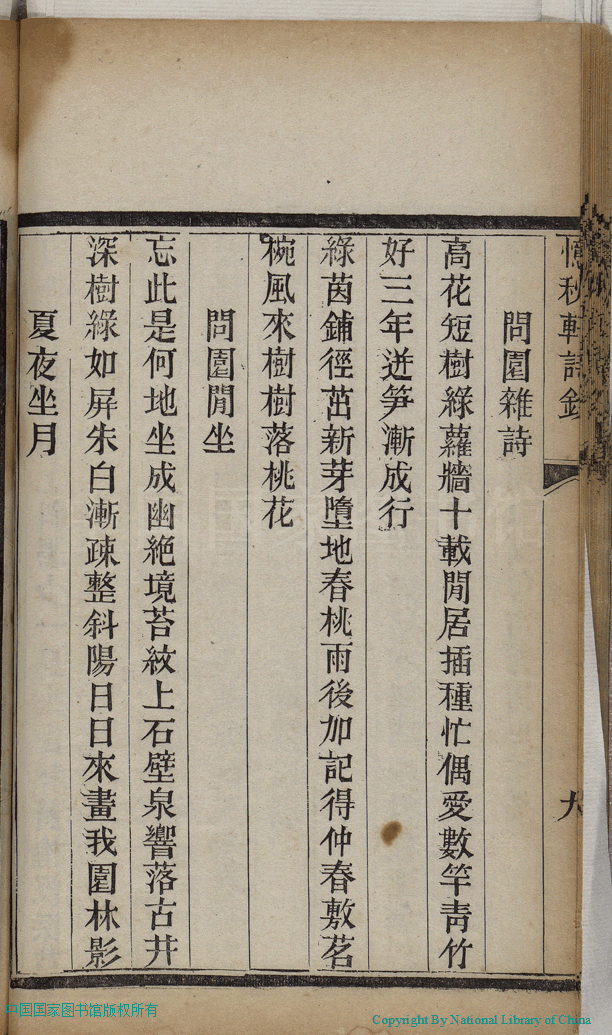 憶秋軒詩鈔
問園雜詩
高花短樹綠蘿牆十載閒居插種忙偶愛數竿靑竹
好三年迸笋漸成行
綠茵鋪徑茁新芽墮地春桃雨後加記得仲春敷茗
椀風來樹樹落桃花
問園閒坐
忘此是何地坐成幽絕境苔紋上石壁泉響落古井
深樹綠如屏朱白漸疎整斜陽日日來畫我園林影
夏夜坐月
中国国家图书馆版权所有
Copyright By National Library of China